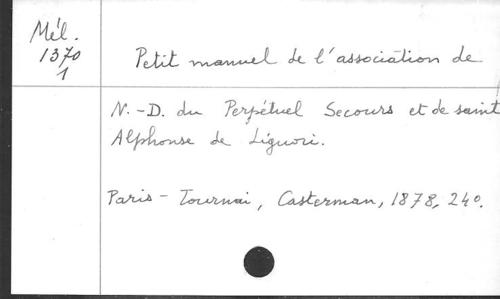 Mél.
1370
1
Petit manuel de l'association de
N.-D. du Perpétuel Secours et de saint
Alphonse de Liguori.
Paris - Tournai, Casterman, 1878, 24°.